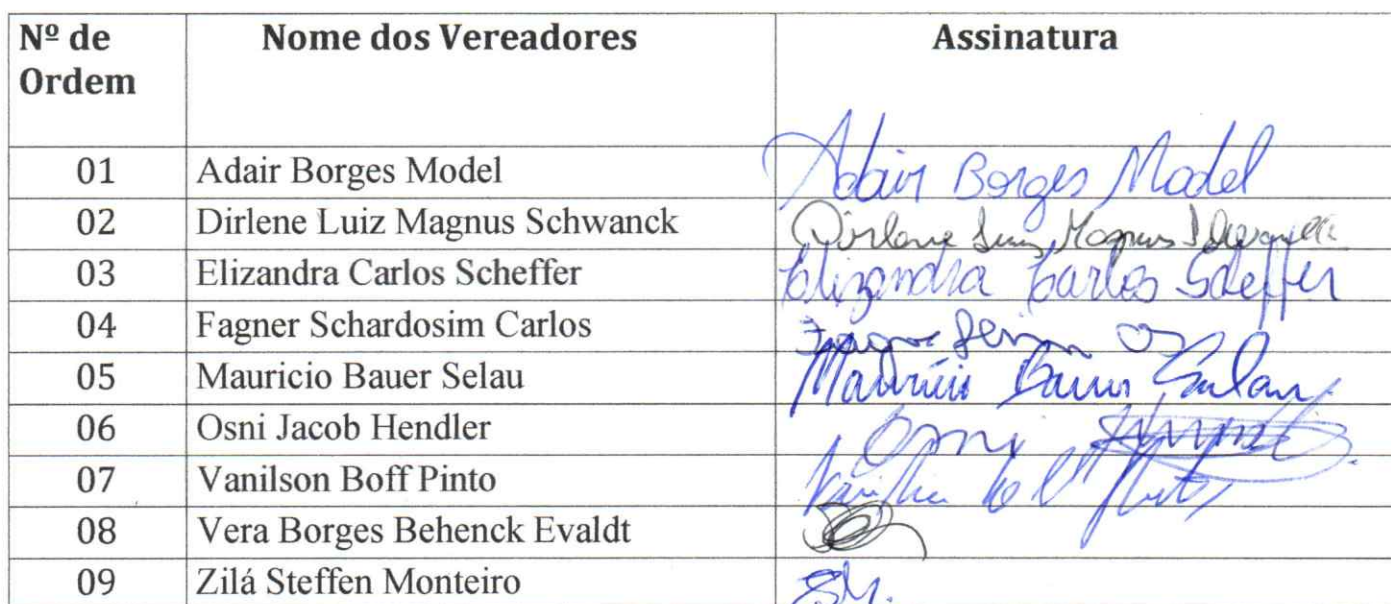 Nº de Ordem Nome dos Vereadores Assinatura
01 Adair Borges Model Adair Borges Model
02 Dirlene Luiz Magnus Schwanck Dirlene Luiz Magnus Schwanck
03 Elizandra Carlos Scheffer Elizandra Carlos Scheffer
04 Fagner Schardosim Carlos
05 Mauricio Bauer Selau Maurício Bauer Selau
06 Osni Jacob Hendler Osni
07 Vanilson Boff Pinto
08 Vera Borges Behenck Evaldt
09 Zilá Steffen Monteiro